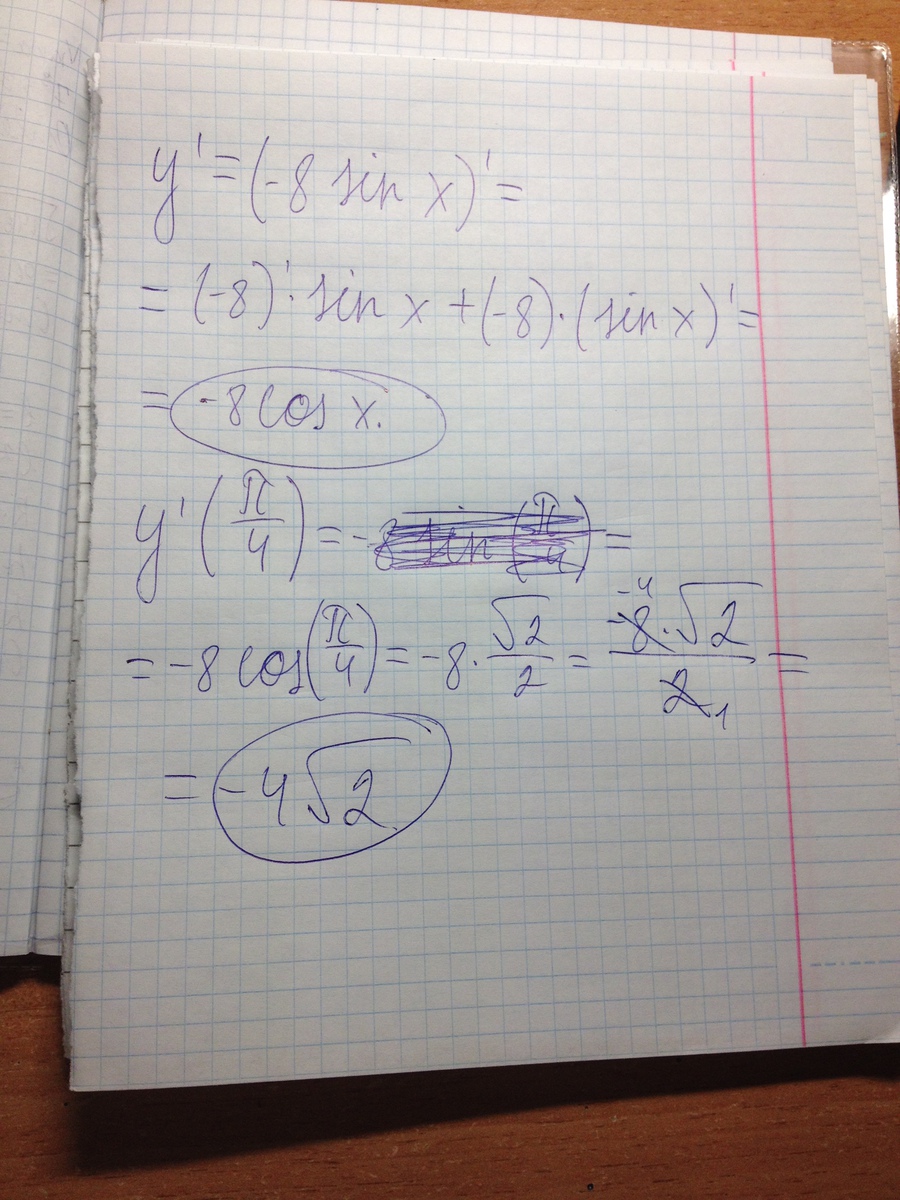 y' = (-8 sin x)' =
= (-8)' · sin x + (-8) · (sin x)' =
= -8 cos x.
y'(π/4) = -8 sin(π/4) =
= -8 cos(π/4) = -8 · √2/2 = -8 · √2/2 -4 1 =
= -4√2